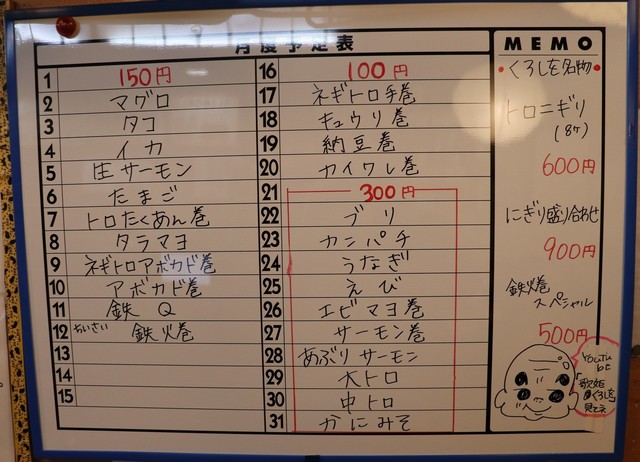 月度予定表
1 150円
2 マグロ
3 タコ
4 イカ
5 生サーモン
6 たまご
7 トロたくあん巻
8 タラマヨ
9 ネギトロアボカド巻
10 アボカド巻
11 鉄Q
12 ちいさい 鉄火巻
13
14
15
16 100円
17 ネギトロ手巻
18 キュウリ巻
19 納豆巻
20 カイワレ巻
21 300円
22 ブリ
23 カンパチ
24 うなぎ
25 えび
26 エビマヨ巻
27 サーモン巻
28 あぶりサーモン
29 大トロ
30 中トロ
31 かにみそ
MEMO
くろしを名物
トロニギリ
(8ケ)
600円
にぎり盛り合わせ
900円
鉄火巻
スペシャル
500円
YouTu
be
「歌姫
くろしを」
見てネ